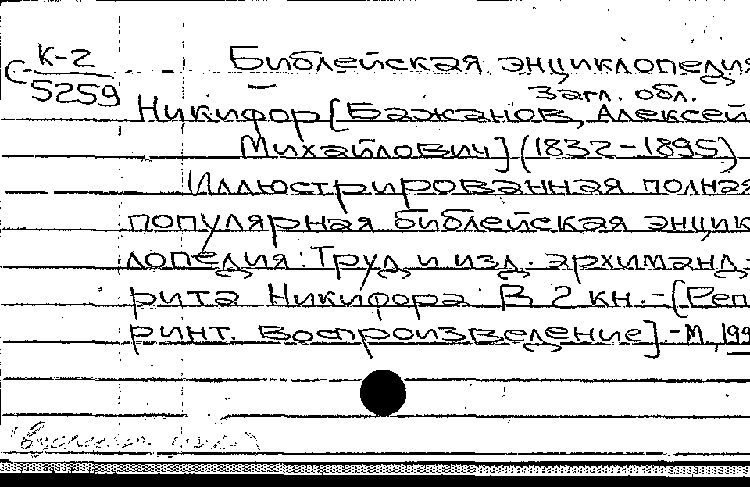 К-2 Библейская энциклопедия
С 5259 Загл. обл.
Никифор [Бажанов, Алексей
Михайлович] (1832-1895)
Иллюстрированная полная
популярная библейская энцик
лопедия: Труд и изд. архиманд-
рита Никифора: В 2 кн.-[Реп
ринт. воспроизведение].-М., 199